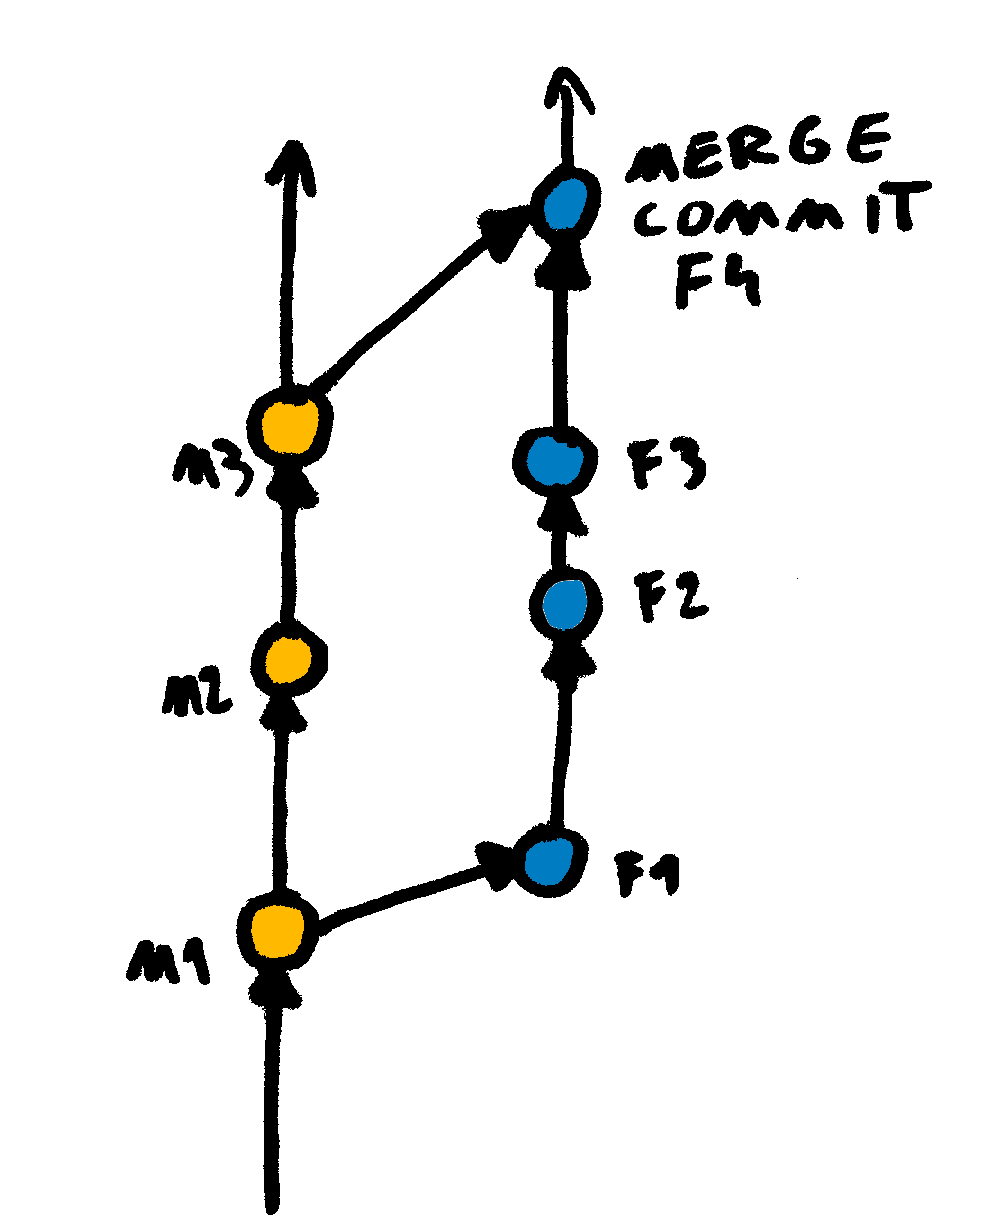 MERGE
COMMIT
F4
M3
F3
F2
M2
F1
M1